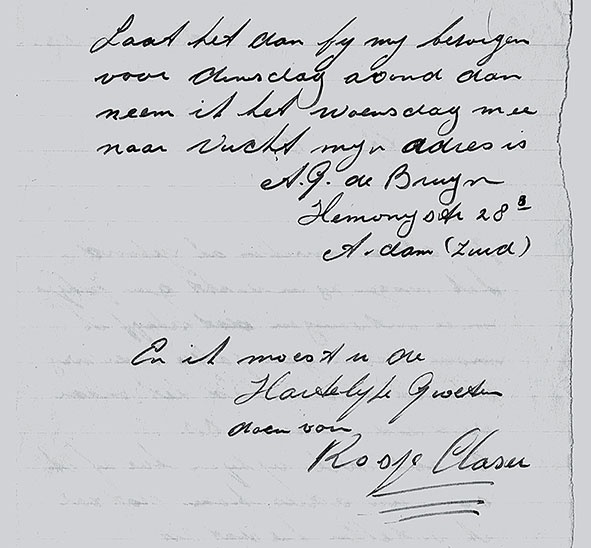 Laat het dan by my bezorgen
voor dinsdag avond dan
neem ik het woensdag mee
naar Vucht myn adres is
A. G. de Bruyn
Hemonystr 28 3
A.dam (Zuid)
En ik moest u de
Hartelyke Groeten
doen van
Roosje Glaser